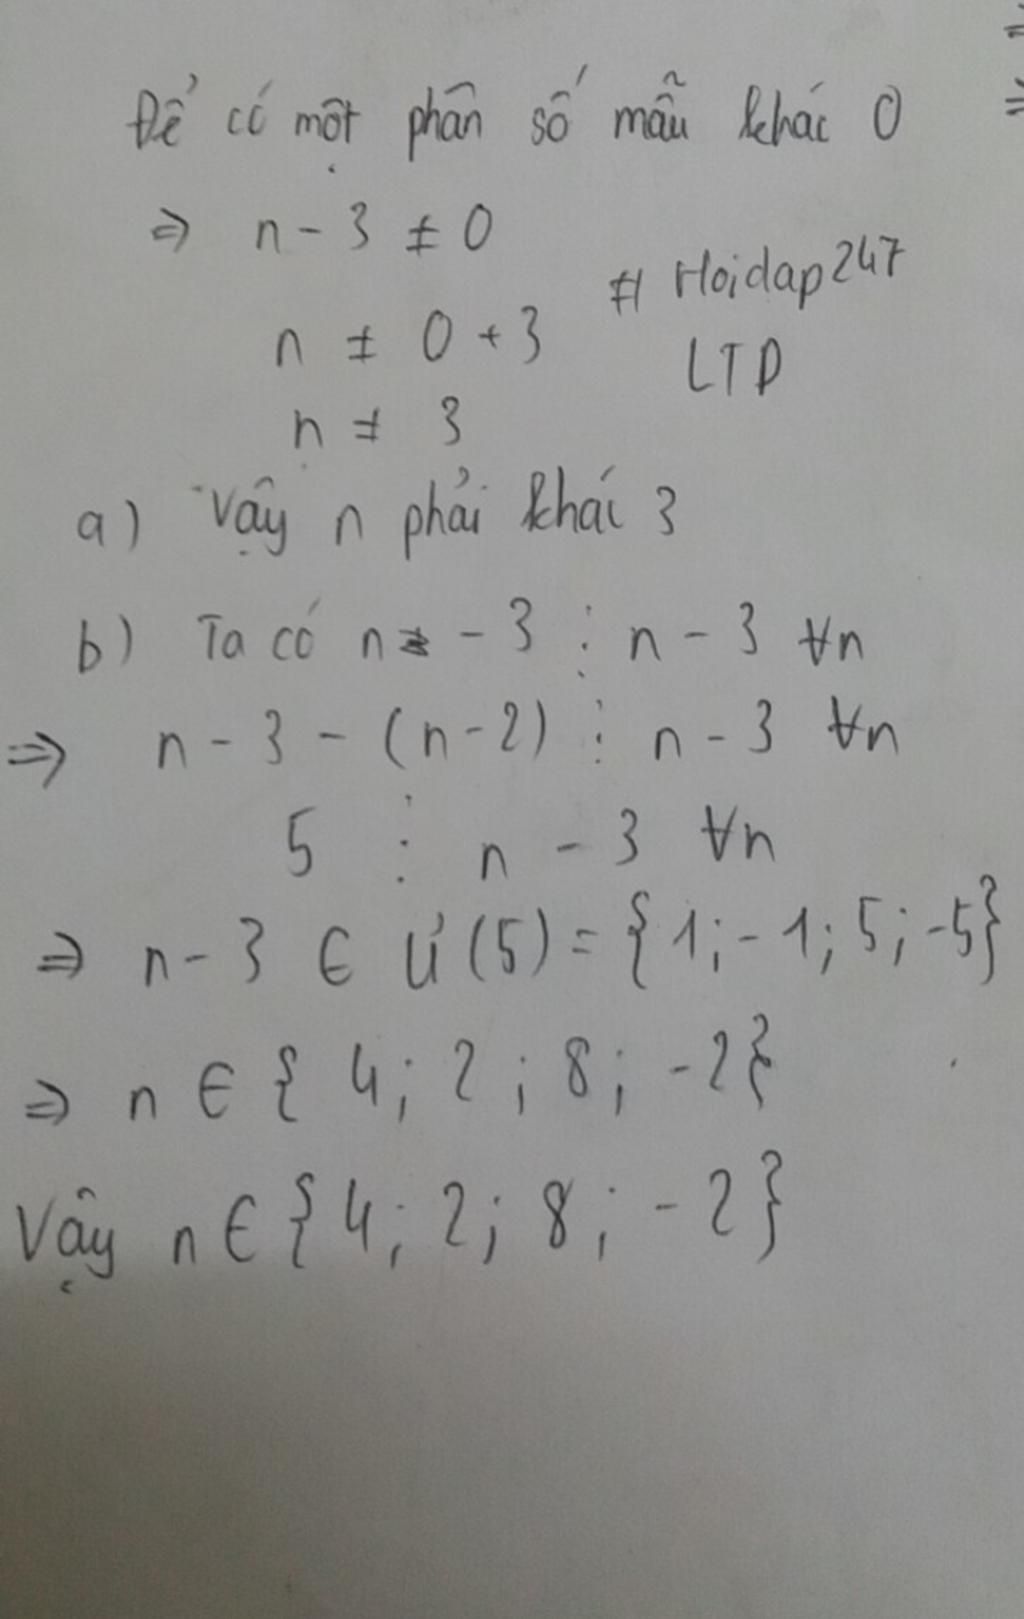 Để có một phân số mẫu khác 0
⇒ n - 3 ≠ 0
# Hoidap247
n ≠ 0 + 3
LTD
n ≠ 3
a) Vậy n phải khác 3
b) Ta có n - 3 ⋮ n - 3 ∀n
⇒ n - 3 - (n - 2) ⋮ n - 3 ∀n
5 ⋮ n - 3 ∀n
⇒ n - 3 ∈ Ư(5) = {1; -1; 5; -5}
⇒ n ∈ {4; 2; 8; -2}
Vậy n ∈ {4; 2; 8; -2}